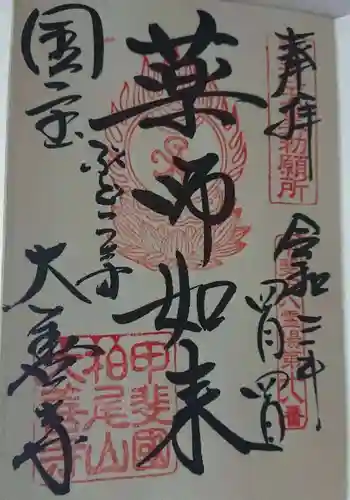 奉拝
勅願所
令和三年
四月四日
薬師如来
国宝
ぶどう寺
大善寺
甲斐國
柏尾山
大善寺